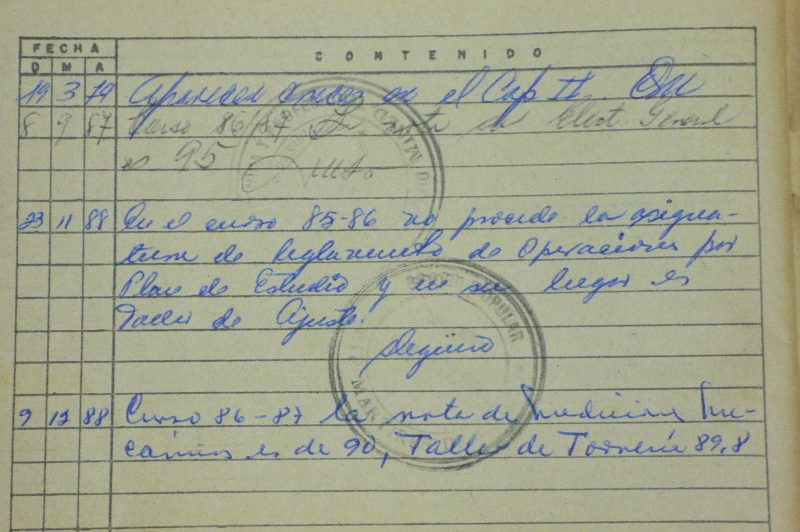 FECHA CONTENIDO
D M A
19 3 79 en el Cap II.
8 9 87 Curso 86/87 nota en Elect. General
es 95
23 11 88 En el curso 85-86 no procede la asigna-
tura de Reglamento de Operaciones por
Plan de Estudio y en su lugar es
Taller de Ajuste.
POPULAR
MAR
9 12 88 Curso 86-87 la nota de Mediciones Me-
cánicas es de 90, Taller de Tornería 89,8